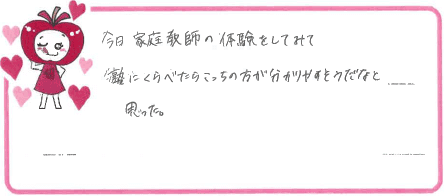 今日家庭教師の体験をしてみて
塾にくらべたらこっちの方が分かりやすそうだなと
思った。